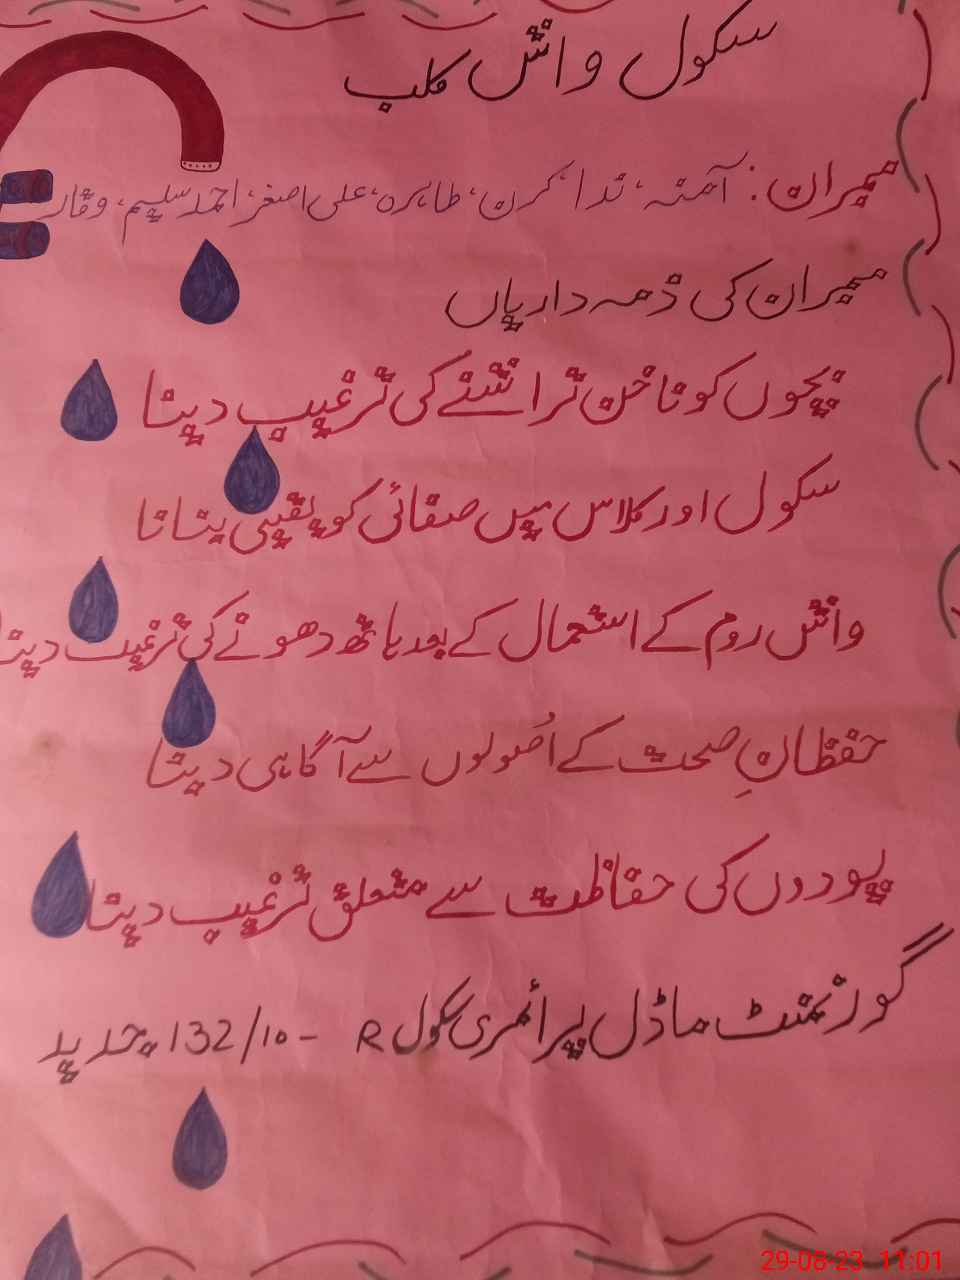 سکول واش کلب
ممبران: آمنہ، ندا، کرن، طاہرہ، علی اصغر، احمد سلیم، وقار
ممبران کی ذمہ داریاں
بچوں کو ناخن تراشنے کی ترغیب دینا
سکول اور کلاس میں صفائی کو یقینی بنانا
واش روم کے استعمال کے بعد ہاتھ دھونے کی ترغیب دینا
حفظانِ صحت کے اُصولوں سے آگاہی دینا
پودوں کی حفاظت سے متعلق ترغیب دینا
گورنمنٹ ماڈل پرائمری سکول 132/10-R جدید
29-08-23 11:01